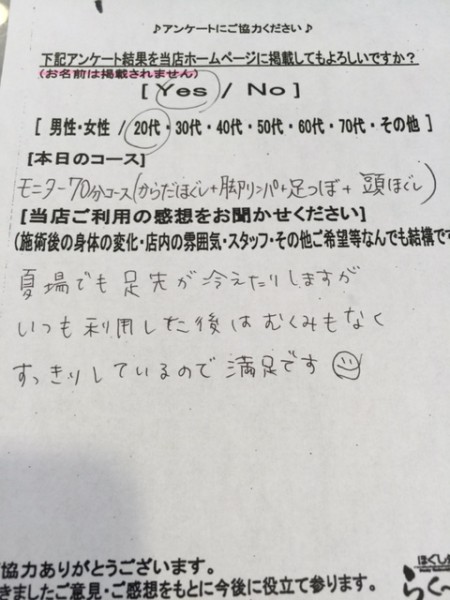 ♪アンケートにご協力ください♪
下記アンケート結果を当店ホームページに掲載してもよろしいですか？
(お名前は掲載されません)
[ Yes / No ]
[ 男性・女性 / 20代・30代・40代・50代・60代・70代・その他 ]
[本日のコース]
モニター70分コース(からだほぐし+脚リンパ+足つぼ+頭ほぐし)
[当店ご利用の感想をお聞かせください]
(施術後の身体の変化・店内の雰囲気・スタッフ・その他ご希望等なんでも結構です
夏場でも足先が冷えたりしますが
いつも利用した後はむくみもなく
すっきりしているので満足です
協力ありがとうございます。
きましたご意見・ご感想をもとに今後に役立て参ります。
ほぐし
らく〜